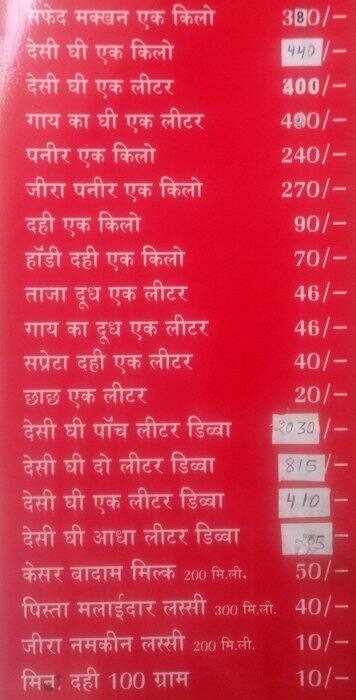 सफेद मक्खन एक किलो 380/-
देसी घी एक किलो 440/-
देसी घी एक लीटर 400/-
गाय का घी एक लीटर 400/-
पनीर एक किलो 240/-
जीरा पनीर एक किलो 270/-
दही एक किलो 90/-
हॉडी दही एक किलो 70/-
ताजा दूध एक लीटर 46/-
गाय का दूध एक लीटर 46/-
सप्रेटा दही एक लीटर 40/-
छाछ एक लीटर 20/-
देसी घी पॉच लीटर डिब्बा 2030/-
देसी घी दो लीटर डिब्बा 815/-
देसी घी एक लीटर डिब्बा 410/-
देसी घी आधा लीटर डिब्बा /-
केसर बादाम मिल्क 200 मि.ली. 50/-
पिस्ता मलाईदार लस्सी 300 मि.ली. 40/-
जीरा नमकीन लस्सी 200 मि.ली. 10/-
मिन. दही 100 ग्राम 10/-